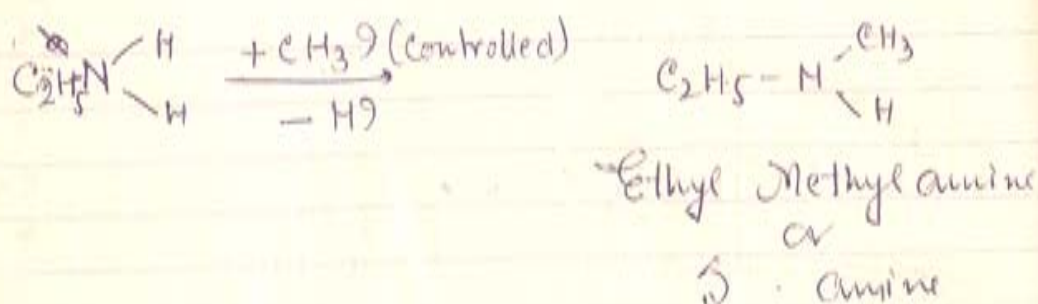 C2H5N H H + CH3I (Controlled) - HI C2H5 - N CH3 H
Ethyl Methyl amine
or
amine